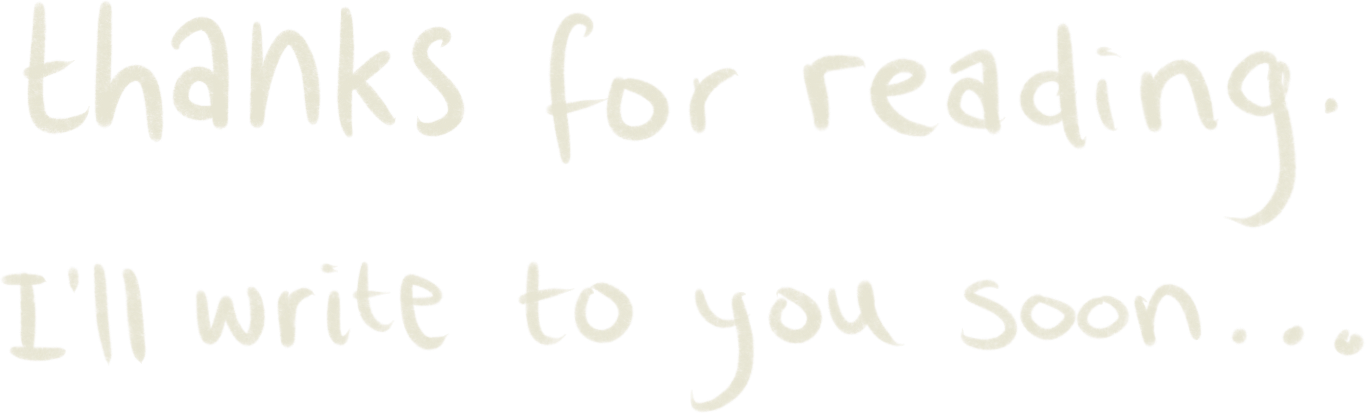 thanks for reading.
I'll write to you soon...